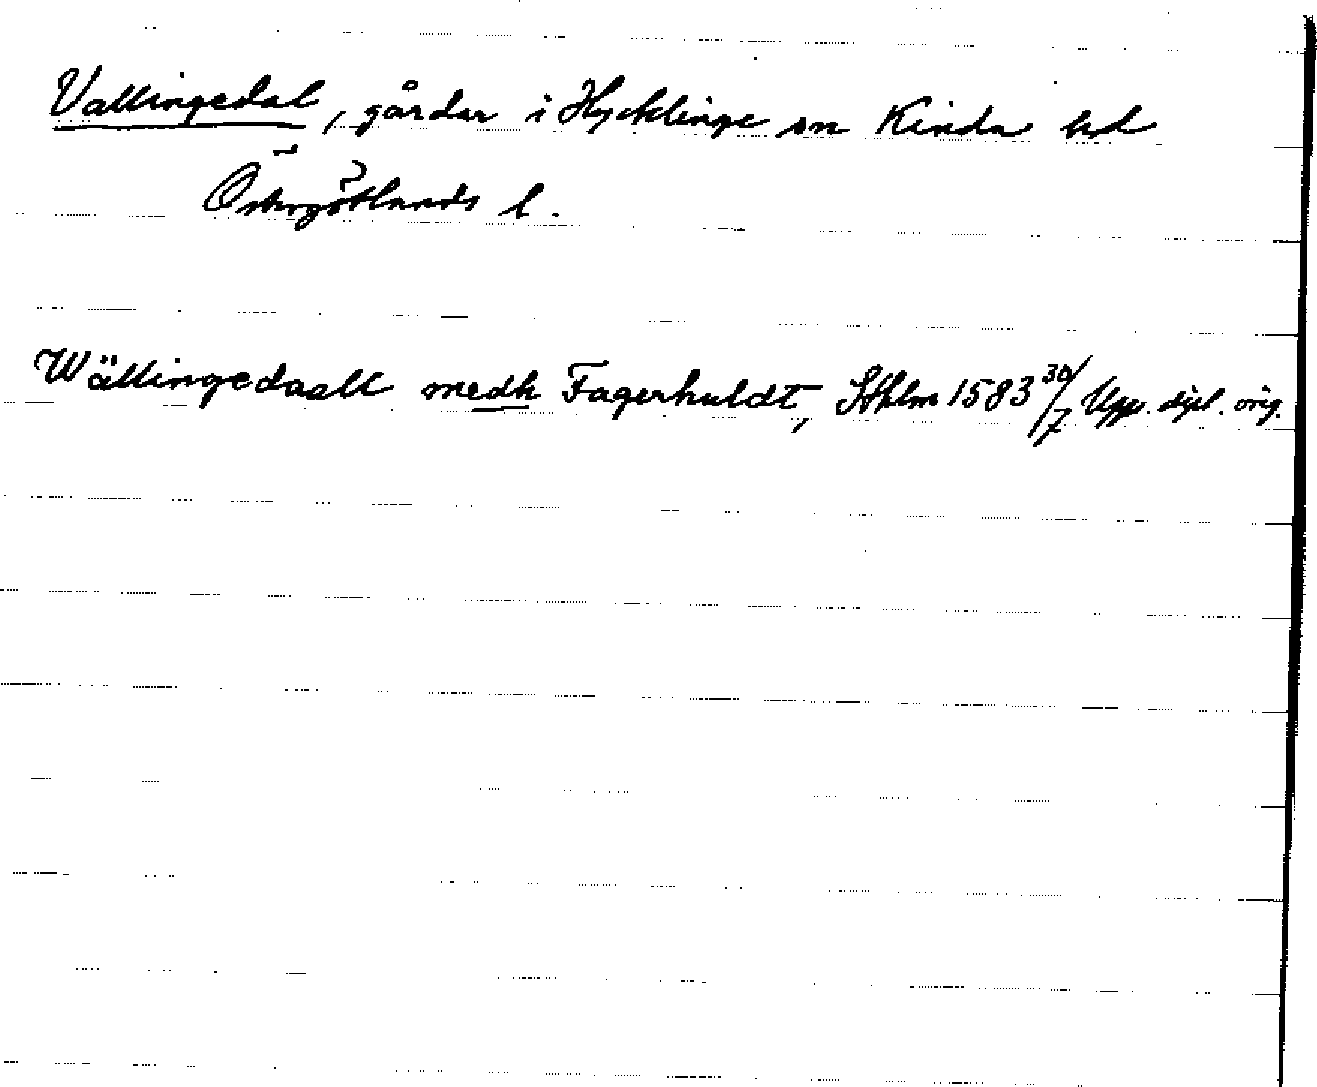 Vallingedal, gårdar i Hycklinge sn Kinda hd
Östergötlands l.
Wällingedaall medh Fagerhuldt, Sthlm 1583 30/7 Upps. dipl. orig.